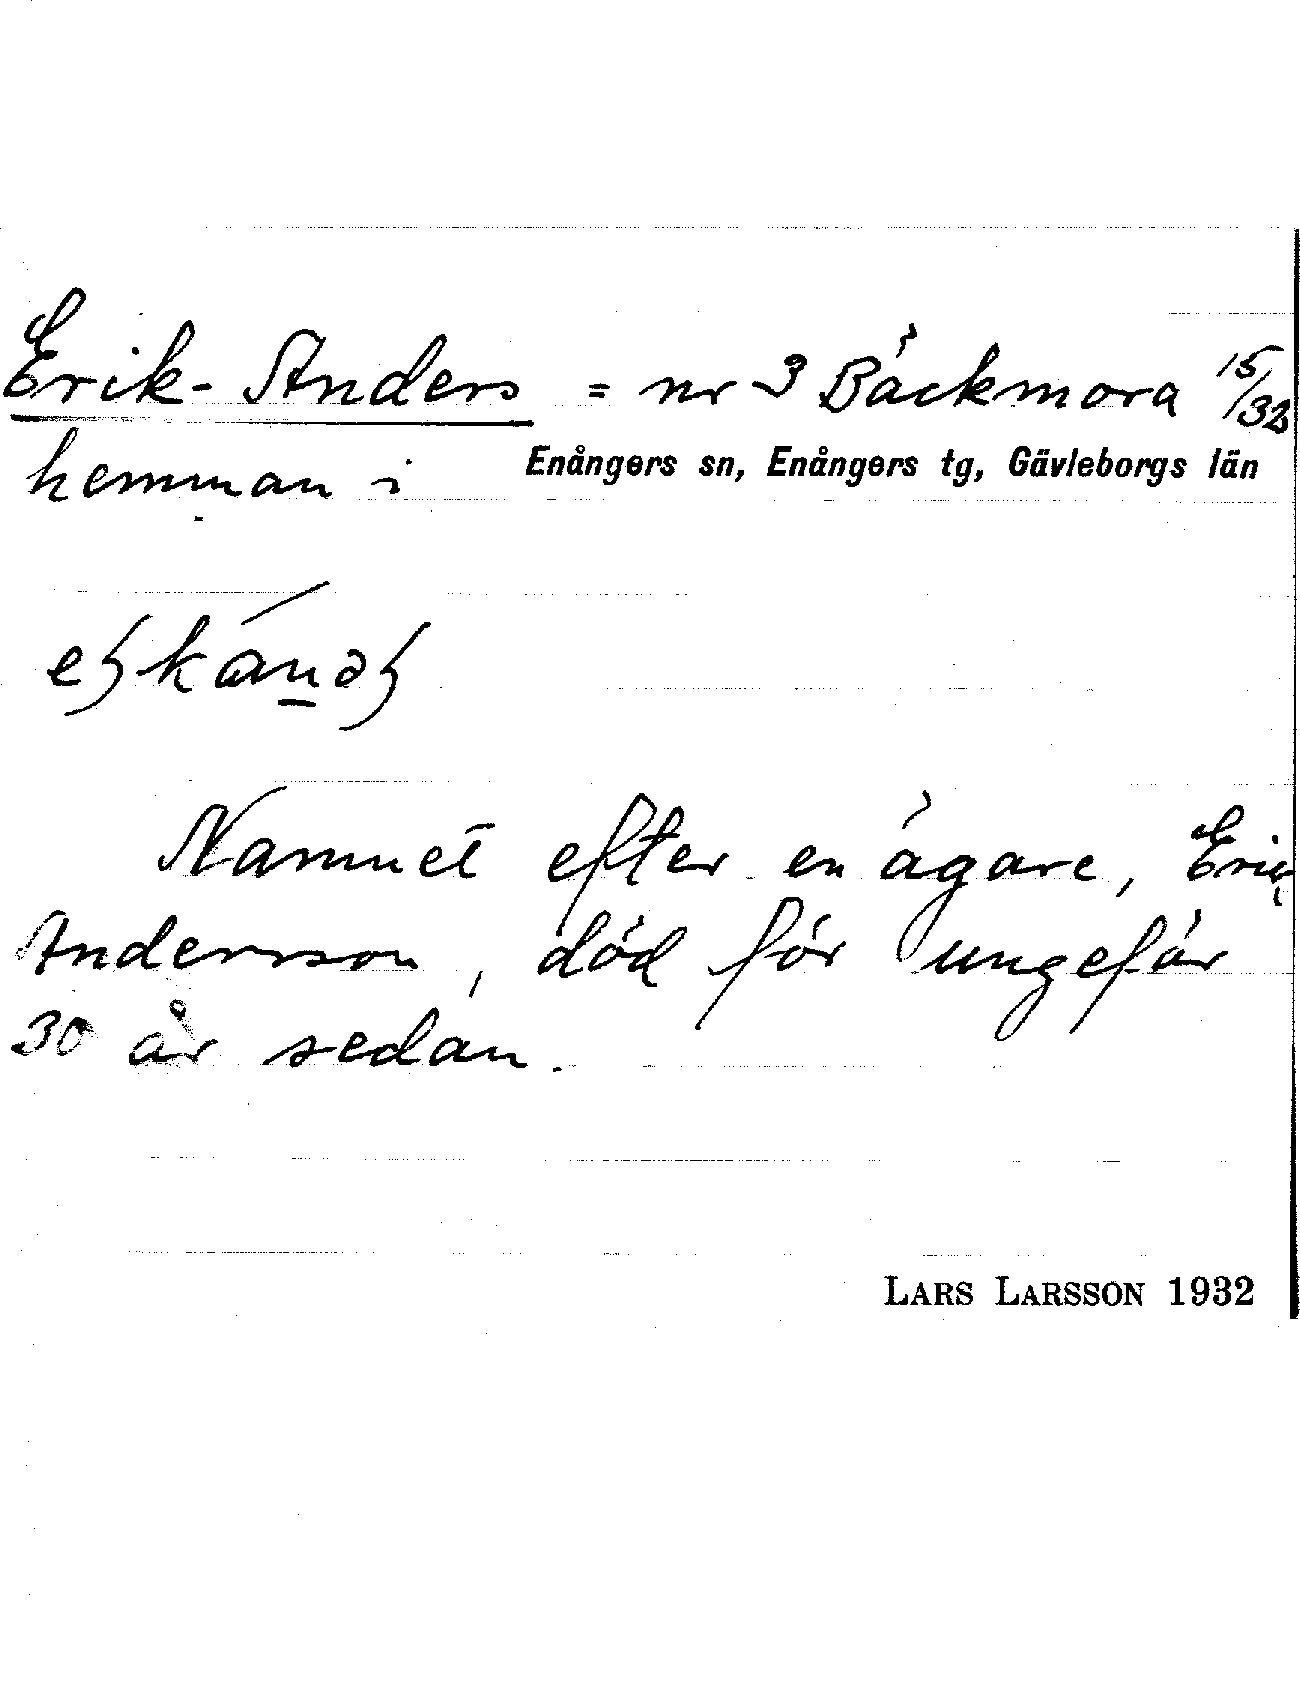 Erik-Anders = nr 3 Bäckmora 15/32
hemman i Enångers sn, Enångers tg, Gävleborgs län
Namnet efter en ägare, Eric
Andersson, död för ungefär
30 år sedan.
LARS LARSSON 1932